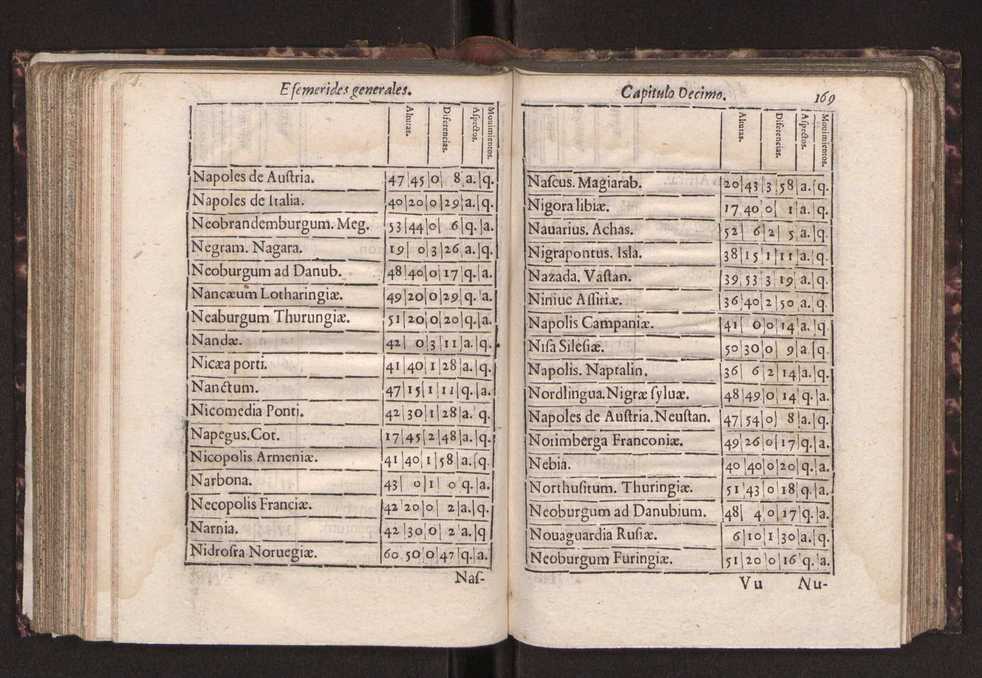 Efemerides generales.
Alturas. Diferencias. Aſpectos. Mouimientos.
Napoles de Auſtria. 47 45 0 8 a. q.
Napoles de Italia. 40 20 0 29 a. q.
Neobrandemburgum. Meg. 53 44 0 6 q. a.
Negram. Nagara. 19 0 3 26 a. q.
Neoburgum ad Danub. 48 40 0 17 q. a.
Nancæum Lotharingiæ. 49 20 0 29 q. a.
Neaburgum Thurungiæ. 51 20 0 20 q. a.
Nandæ. 42 0 3 11 a. q.
Nicæa porti. 41 40 1 28 a. q.
Nanctum. 47 15 1 11 q. a.
Nicomedia Ponti. 42 30 1 28 a. q.
Napegus. Cor. 17 45 2 48 a. q.
Nicopolis Armeniæ. 41 40 1 58 a. q.
Narbona. 43 0 1 0 q. a.
Necopolis Franciæ. 42 20 0 2 a. q.
Narnia. 42 30 0 2 a. q
Nidroſra Noruegiæ. 60 50 0 47 q. a.
Naſ-
Capitulo Decimo. 169
Alturas. Diferencias. Aſpectos. Mouimientos.
Naſcus. Magiarab. 20 43 3 58 a. q.
Nigora libiæ. 17 40 0 1 a. q.
Nauarius. Achas. 52 6 2 5 a. q.
Nigrapontus. Isla. 38 15 1 11 a. q.
Nazada. Vaſtan. 39 53 3 19 a. q.
Niniue Aſſiriæ. 36 40 2 50 a. q.
Napolis Campaniæ. 41 0 0 14 a. q.
Niſa Sileſiæ. 50 30 0 9 a. q.
Napolis. Naptalin. 36 6 2 14 a. q.
Nordlingua. Nigræ ſyluæ. 48 49 0 14 q. a.
Napoles de Auſtria. Neuſtan. 47 54 0 8 a. q.
Norimberga Franconiæ. 49 26 0 17 q. a.
Nebia. 40 40 0 20 q. a.
Northuſitum. Thuringiæ. 51 43 0 18 q. a.
Neoburgum ad Danubium. 48 4 0 17 q. a.
Nouaguardia Ruſiæ. 6 10 1 30 a. q.
Neoburgum Furingiæ. 51 20 0 16 q. a.
Vu Nu-